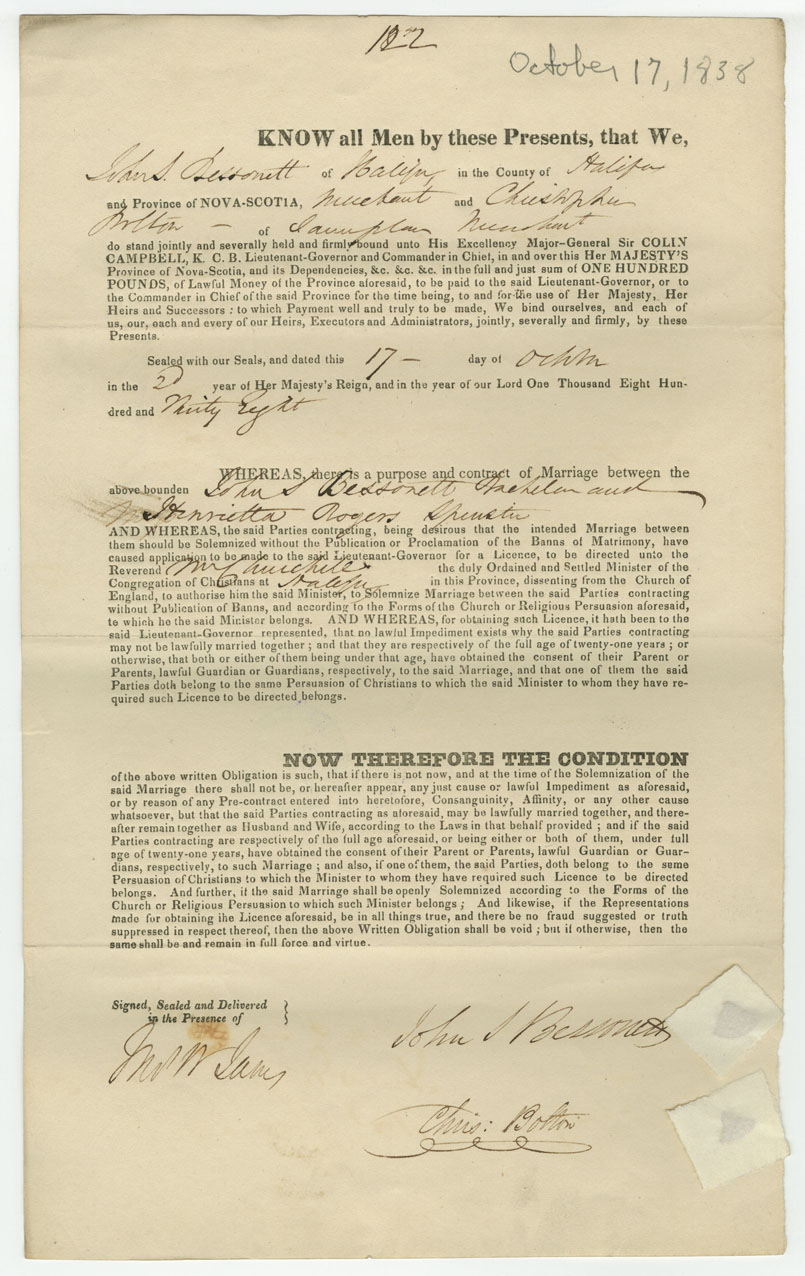 October 17, 1838
KNOW all Men by these Presents, that We,
John S. Bessonett of Halifax in the County of Halifax
and Province of NOVA-SCOTIA, Merchant and Christopher
Bolton – of Merchant
do stand jointly and severally held and firmly bound unto His Excellency Major-General Sir COLIN
CAMPBELL, K. C. B. Lieutenant-Governor and Commander in Chief, in and over this Her MAJESTY'S
Province of Nova-Scotia, and its Dependencies, &c. &c. &c. in the full and just sum of ONE HUNDRED
POUNDS, of Lawful Money of the Province aforesaid, to be paid to the said Lieutenant-Governor, or to
the Commander in Chief of the said Province for the time being, to and for the use of Her Majesty, Her
Heirs and Successors : to which Payment well and truly to be made, We bind ourselves, and each of
us, our, each and every of our Heirs, Executors and Administrators, jointly, severally and firmly, by these
Presents.
Sealed with our Seals, and dated this 17 – day of
in the 2d year of Her Majesty's Reign, and in the year of our Lord One Thousand Eight Hun-
dred and Thirty Eight
WHEREAS, there is a purpose and contract of Marriage between the
above bounden John S Bessonett Bachelor and
Henrietta Rogers Spinster
AND WHEREAS, the said Parties contracting, being desirous that the intended Marriage between
them should be Solemnized without the Publication or Proclamation of the Banns of Matrimony, have
caused application to be made to the said Lieutenant-Governor for a Licence, to be directed unto the
Reverend the duly Ordained and Settled Minister of the
Congregation of Christians at Halifax in this Province, dissenting from the Church of
England, to authorise him the said Minister, to Solemnize Marriage between the said Parties contracting
without Publication of Banns, and according to the Forms of the Church or Religious Persuasion aforesaid,
to which he the said Minister belongs. AND WHEREAS, for obtaining such Licence, it hath been to the
said Lieutenant-Governor represented, that no lawful Impediment exists why the said Parties contracting
may not be lawfully married together ; and that they are respectively of the full age of twenty-one years ; or
otherwise, that both or either of them being under that age, have obtained the consent of their Parent or
Parents, lawful Guardian or Guardians, respectively, to the said Marriage, and that one of them the said
Parties doth belong to the same Persuasion of Christians to which the said Minister to whom they have re-
quired such Licence to be directed belongs.
NOW THEREFORE THE CONDITION
of the above written Obligation is such, that if there is not now, and at the time of the Solemnization of the
said Marriage there shall not be, or hereafter appear, any just cause or lawful Impediment as aforesaid,
or by reason of any Pre-contract entered into heretofore, Consanguinity, Affinity, or any other cause
whatsoever, but that the said Parties contracting as aforesaid, may be lawfully married together, and there-
after remain together as Husband and Wife, according to the Laws in that behalf provided ; and if the said
Parties contracting are respectively of the full age aforesaid, or being either or both of them, under full
age of twenty-one years, have obtained the consent of their Parent or Parents, lawful Guardian or Guar-
dians, respectively, to such Marriage ; and also, if one of them, the said Parties, doth belong to the same
Persuasion of Christians to which the Minister to whom they have required such Licence to be directed
belongs. And further, if the said Marriage shall be openly Solemnized according to the Forms of the
Church or Religious Persuasion to which such Minister belongs ; And likewise, if the Representations
made for obtaining the Licence aforesaid, be in all things true, and there be no fraud suggested or truth
suppressed in respect thereof, then the above Written Obligation shall be void ; but if otherwise, then the
same shall be and remain in full force and virtue.
Signed, Sealed and Delivered
in the Presence of
John S Bessonett
Chris: Bolton